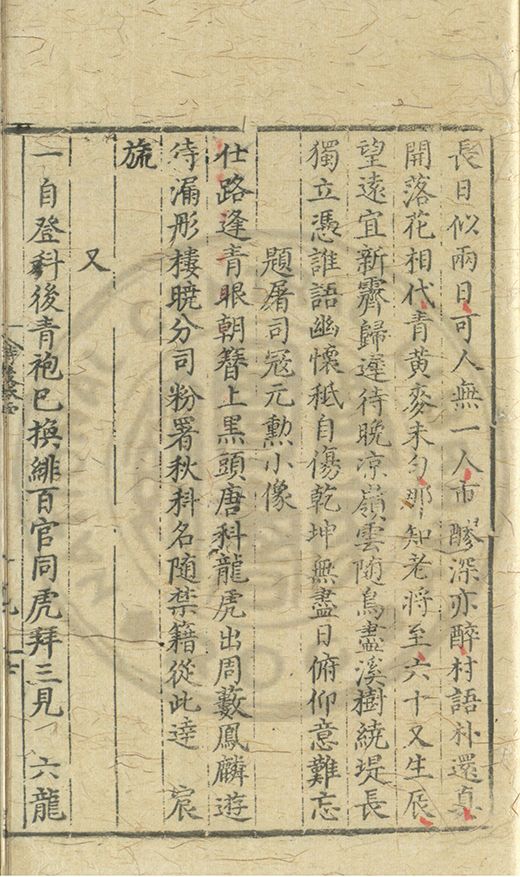 長日似兩日可人無一人市醪深亦醉村語朴還真
開落花相代青黃麥未勻那知老將至六十又生辰
望遠宜新霽歸遲待晚凉嶺雲隨鳥盡溪樹繞堤長
獨立憑誰語幽懷秪自傷乾坤無盡日俯仰意難忘
題屠司冦元勳小像
仕路逢青眼朝簪上黒頭唐科龍虎出周藪鳳麟遊
待漏彤樓曉分司粉署秋科名隨禁籍從此達 宸
旒
又
一自登科後青袍巳換緋百官同虎拜三見 六龍